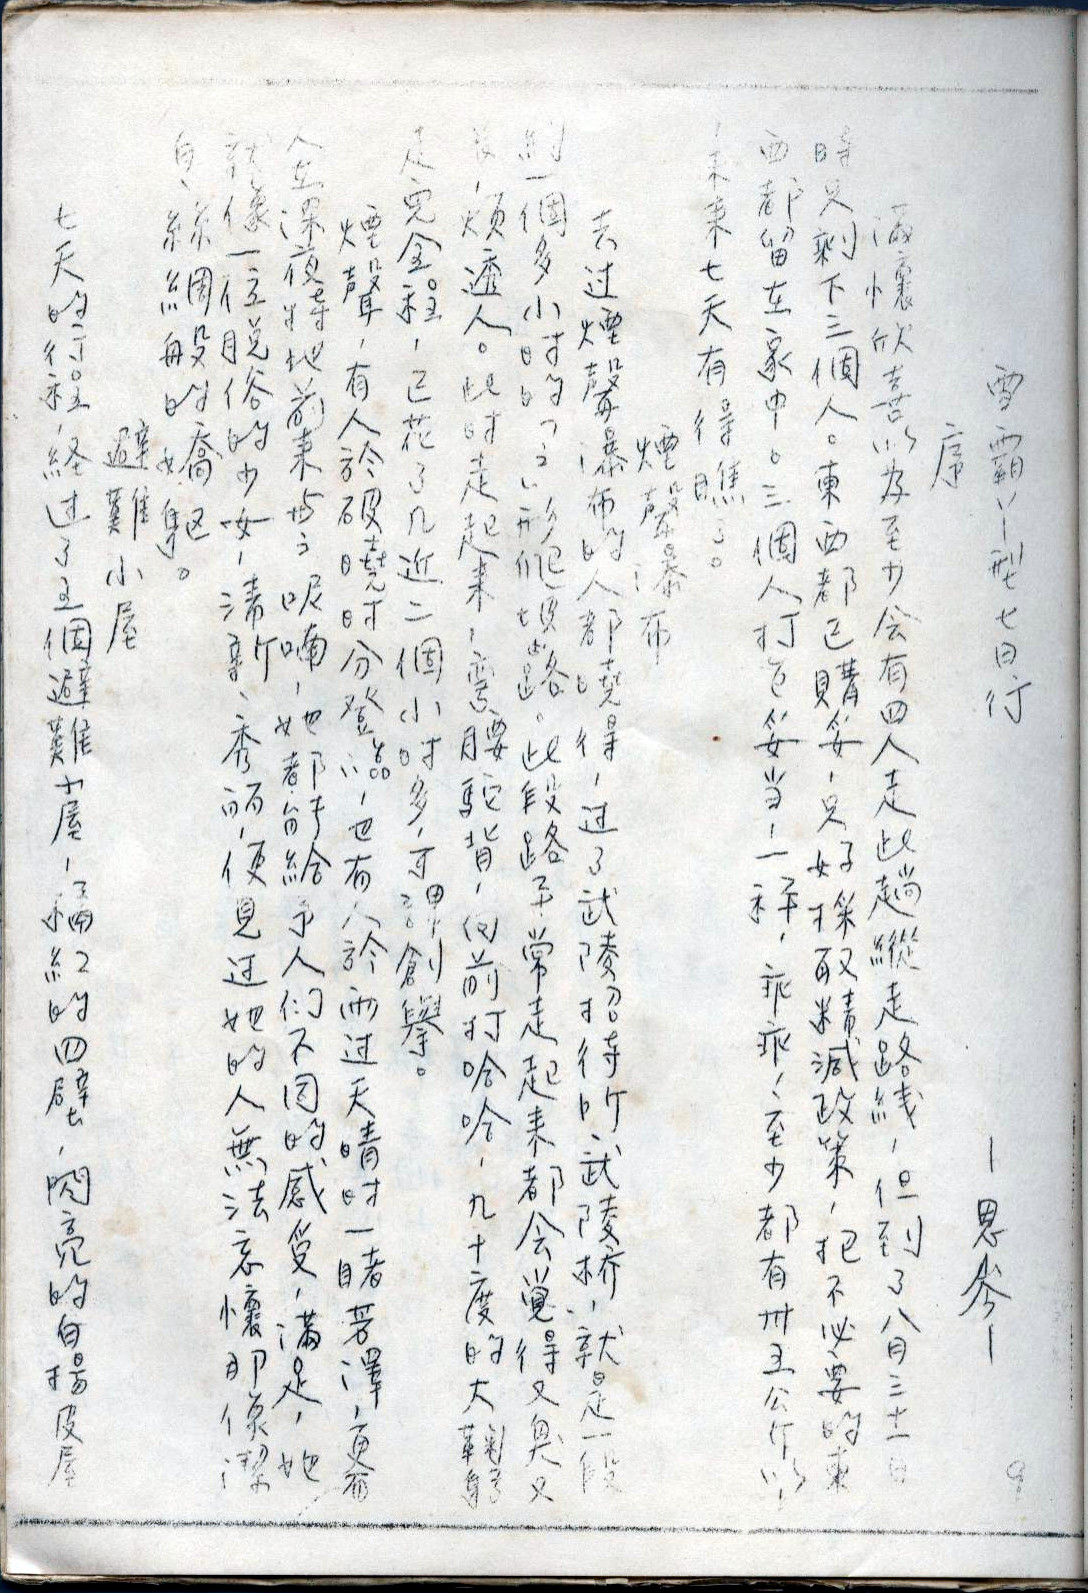 雪霸丫型七日行
—思岑—
序
滿懷欣喜以為至少会有四人走此趟縱走路綫，但到了八月三十一日
時只剩下三個人。東西都已購妥，只好採取精減政策，把不必要的東
西都留在家中。三個人打包妥当，一秤，乖乖，至少都有卅五公斤以
上，未來七天有得瞧了。
煙聲瀑布
去过煙聲瀑布的人都曉得，过了武陵招待所、武陵桥，就是一段
約一個多小時的「之」形爬坡路。此段路平常走起來都会覚得又臭又
長，煩透人。此时走起來，彎腰駝背，向前打哈哈，九十度的大鞠躬
走完全程，已花了几近二個小时多，可謂創舉。
煙聲，有人於破曉时分登臨，也有人於雨过天晴时一睹芳澤，更有
人在深夜特地前來与之呢喃，她都能給予人们不同的感受，滿足，她
就像一位脱俗的少女，清新、秀丽，便見过她的人無法忘懷那像潔
白、絲綢般的
絲絹般的嬌軀。
避難小屋
七天的行程，経过了五個避難小屋，の四壁，閃亮的白楊皮屋
9